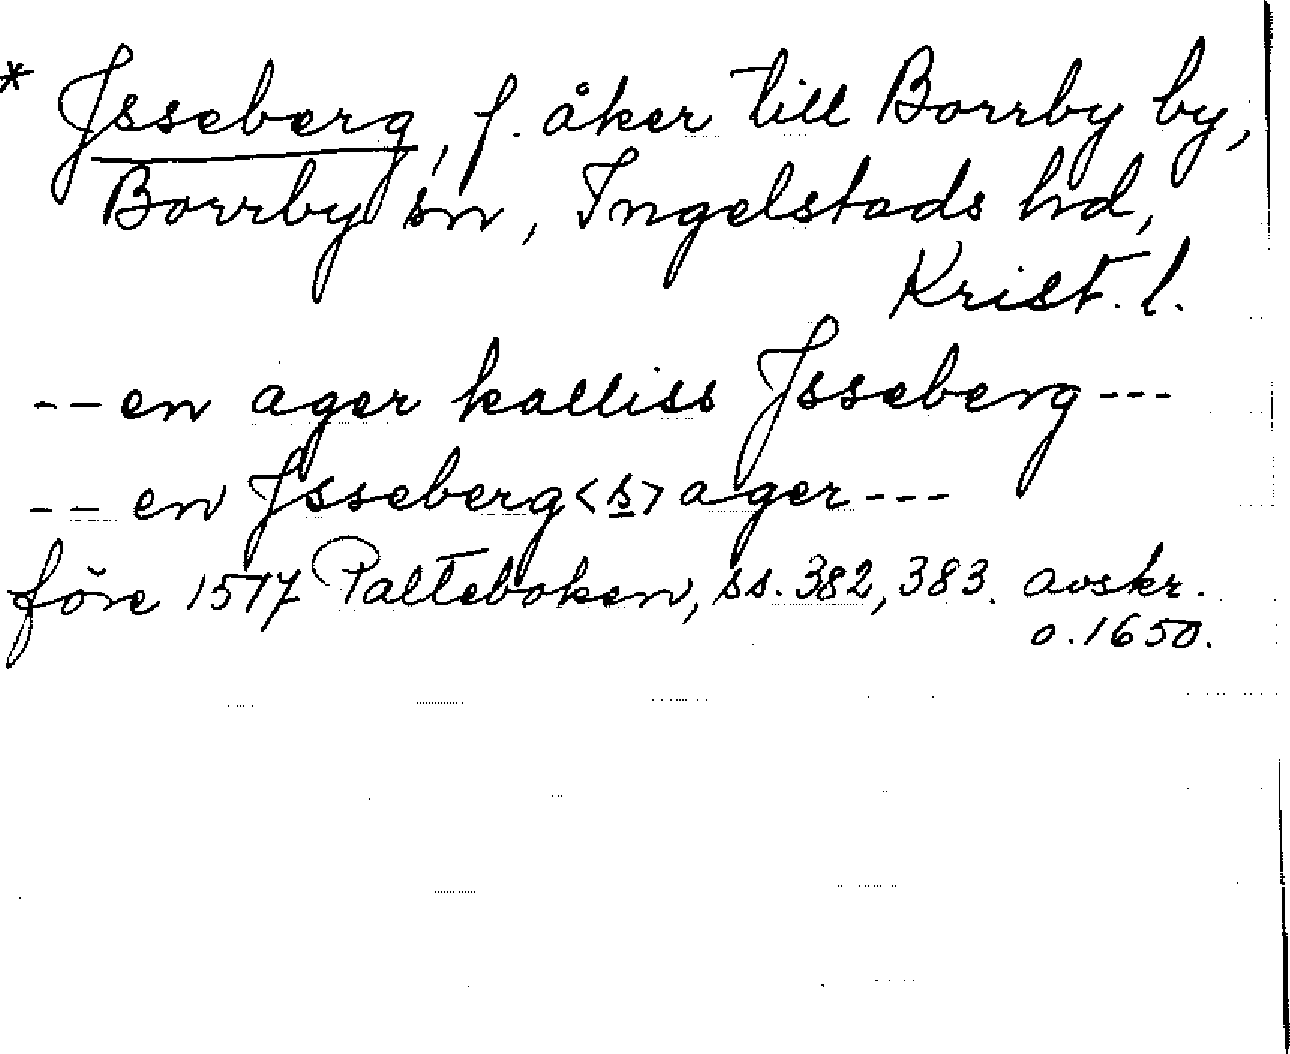 * Jsseberg, f. åker till Borrby by,
Borrby sn, Ingelstads hd,
Krist. l.
-- en ager kalliss Jsseberg ---
-- en Jsseberg<s>ager ---
före 1517 Palteboken, ss. 382, 383. avskr.
o. 1650.